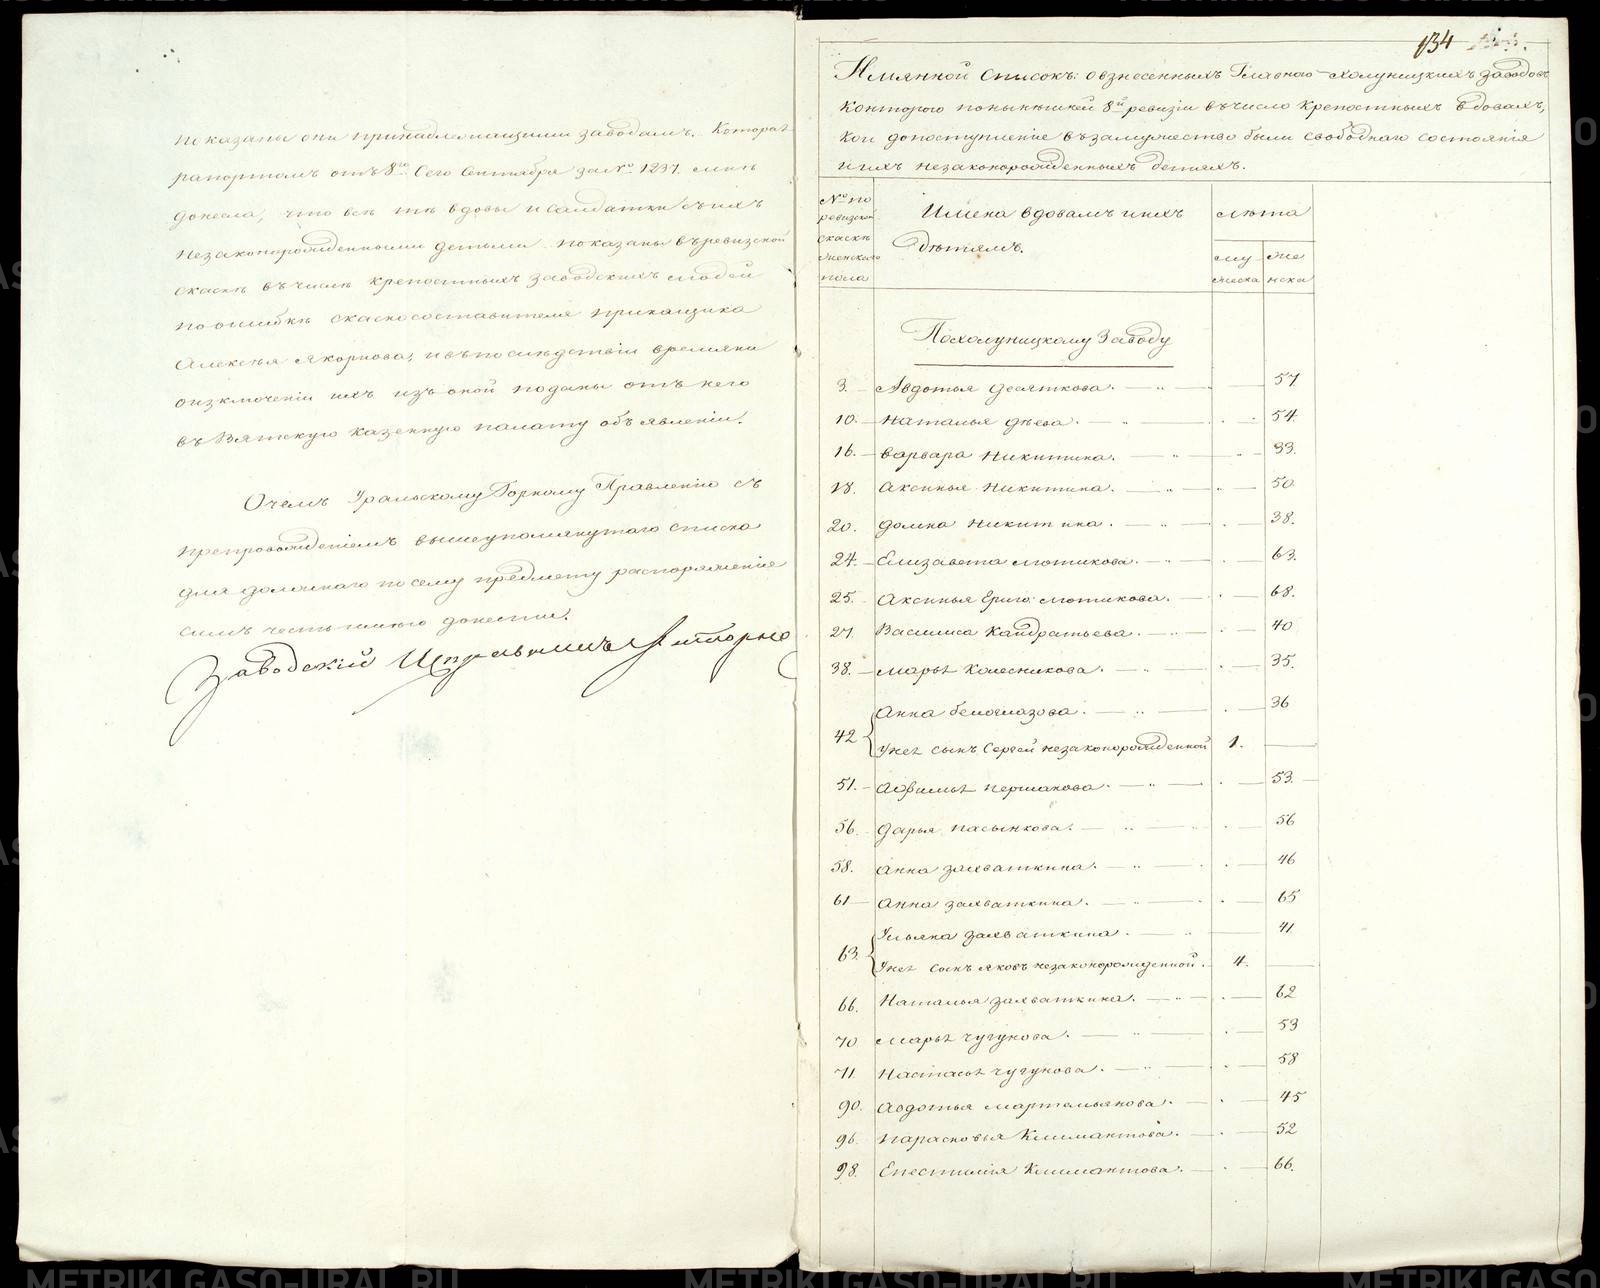 показаны они принадлежащими заводамъ. Котораѧ
рапортомъ отъ 8го Сего Сентября за № 1237. мнѣ
донесла, что всѣ тѣ вдовы и салдатки съ ихъ
незаконорожденными детьми показаны въ ревизской
скаскѣ въ числѣ крепостныхъ заводскихъ людей
по ошибкѣ скаскосоставителя прикащика
Алексѣя Якорнова, и въ посмѣдствіи времяни
о изключеніи ихъ изъ оной поданы отъ него
въ Вятскую казенную палату объявленіи.
О чемъ Уральскому Горному Правленію съ
препровожденіемъ вышеупомянутаго списка
для должнаго по сему предмету распоряженіе
симъ честь имею донести.
Заводскій Исправникъ
134
Имянной списокъ: овзнесенныхъ Главною Холуницкихъ заводовъ
конторою по нынѣшней 8й ревизіи въ число крепостныхъ вдовахъ,
кои до поступленіе въ замужество были свободнаго состоянія
и ихъ незаконорожденныхъ детяхъ.
№ по ревизской скаскѣ женскаго пола
Имена вдовамъ и ихъ дѣтямъ.
лѣта
мужеска
женска
По холуницкому Заводу
3. Авдотья Десяткова. 57
10. Наталья Дѣева. 54.
16. Варвара Никитина. 33.
18. Аксинья Никитина. 50
20. Домна Никитина. 38.
24. Елизавета Мотикова. 63.
25. Аксинья Ериго: Мотикова. 68.
27. Василиса Кандратьева. 40
38. Марьѧ Колесникова. 35.
42 Анна белоглазова. 36
У неѧ сынъ Сергей незаконорожденной 1.
51. Афимьѧ першакова. 53.
56. Дарья пасынкова. 56
58. Анна захваткина. 46
61 Анна захваткина. 65
63. Ульяна захваткина. 41
У неѧ сынъ яковъ незаконорожденной. 4.
66. Наталья захваткина. 62
70 Марьѧ Чугунова. 53
71 Настасьѧ Чугунова. 58
90. Авдотья мартемьянова. 45
96. Парасковья Климантова. 52
98. Епестимія Климантова. 66.
METRIKI.GASO-URAL.RU